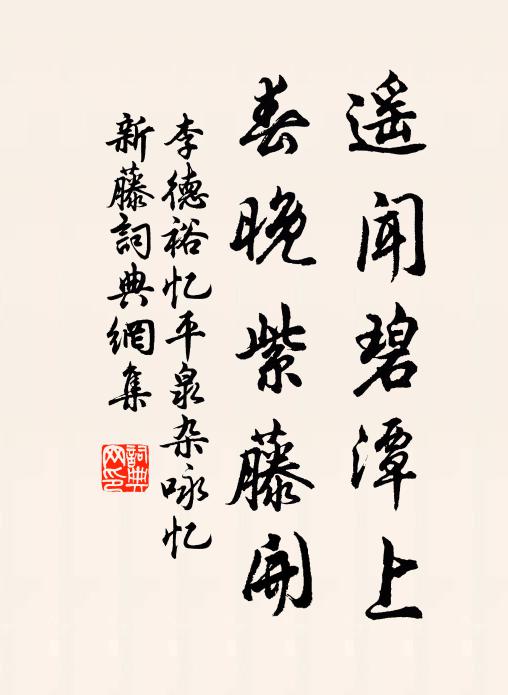 遥闻碧潭上
春晚紫藤開
李德裕忆平泉杂咏忆
新藤詞典網集
詞典
网印